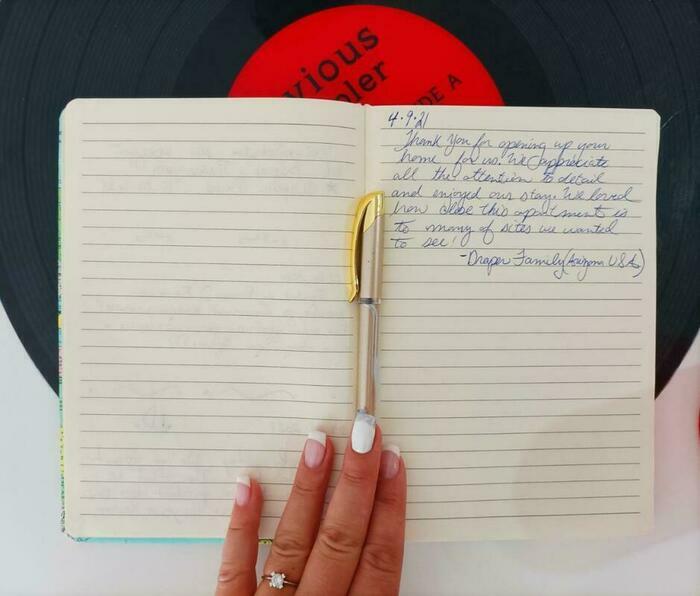 vious
pler
DE A
4.9.21
Thank You for opening up your
home for us. We appreciate
all the attention to detail
and enjoyed our stay. We loved
how close this apartment is
to many of sites we wanted
to see!
-Draper Family (Arizona USA)